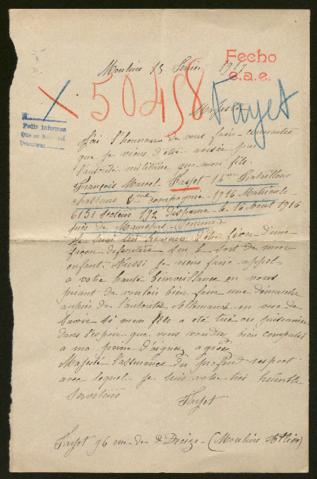 Moulins 23 Février 1917
Fecho
e.a.e.
50458 Fayet
Pide informes
Majesté
J'ai l'honneur de vous faire connaître
que je viens d'être avisé par
l'autorité militaire que mon fils
François Marcel Fayet 16me Bataillon
chasseurs 6me compagnie 1916 Matricule
6131 Secteur 192 disparu le 14 août 1916
près de Maurepas Somme
d'une
façon du sort de mon
enfant. Aussi je viens faire appel
à votre haute bienveillance en vous
priant de vouloir bien faire une démarche
auprès de l'autorité allemande en vue de
savoir si mon fils a été tué ou prisonnier
dans l'espoir que vous voudrez bien compatir
à ma peine d'
Majesté l'assurance du profond respect
avec lequel je suis votre très humble
serviteur
Fayet
Fayet 96 rue de (Moulins Allier)